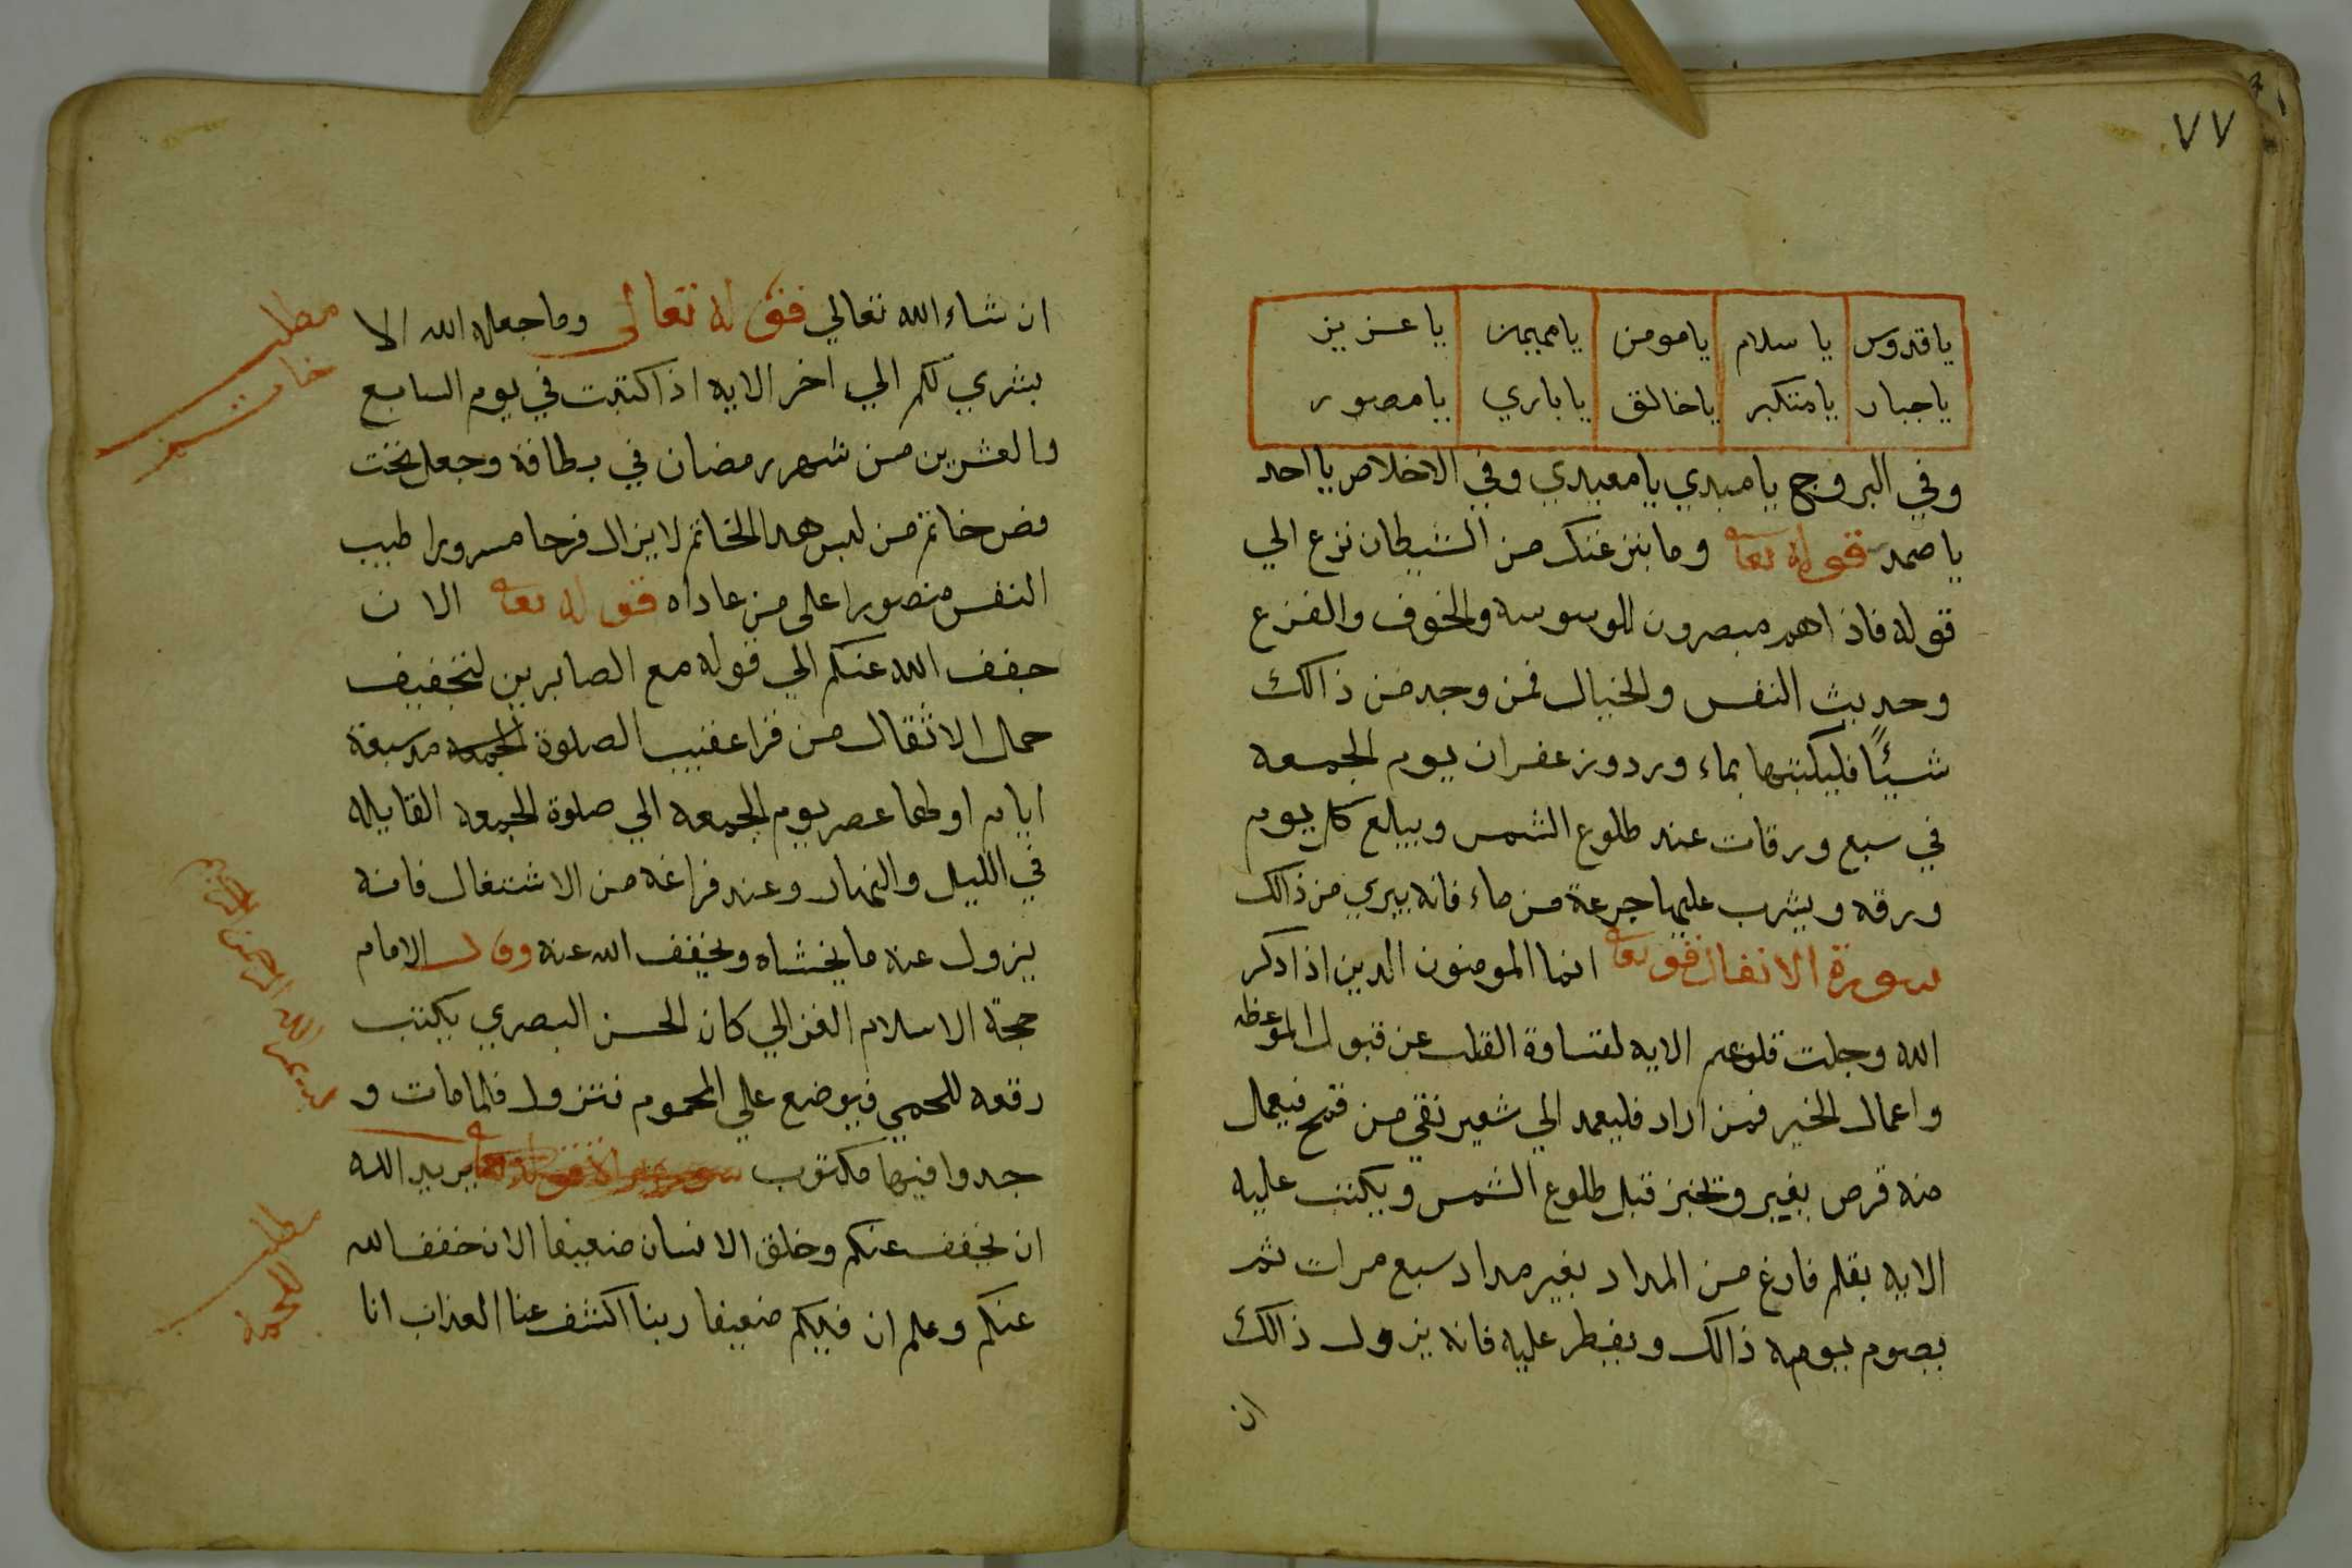 ٧٧
يا قدوس يا سلام يا مومن يا مهيمن يا عزيز
يا جبار يا متكبر يا خالق يا باري يا مصور
وفي البروج يا مبدي يا معيدي وفي الاخلاص يا احد
يا صمد قوله تعا وما ينزغنك من الشيطان نزع الي
قوله فاذا هم مبصرون للوسوسه والخوف والفزع
وحديث النفس والخيال فمن وجد من ذالك
شيئًا فليكتبها بماء ورد وزعفران يوم الجمعه
في سبع ورقات عند طلوع الشمس ويبلع كل يوم
ورقه ويشرب عليها جرعة من ماء فانه يبري من ذالك
سورة الانفال قو تعا انما المومنون الدين اذا دكر
الله وجلت قلوبهم الايه لقساوة القلب عن قبول الموعظه
واعمال الخير فمن اراد فليعمد الي شعير نقي من قمح فيعمل
منه قرص بغير وتخبز قبل طلوع الشمس ويكتب عليه
الايه بقلم فارغ من المداد بغير مداد سبع مرات ثم
يصوم يومه ذالك ويفطر عليه فانه يزول ذالك
ان
ان شاء الله تعالي قوله تعالى وما جعله الله الا
مطلب
بشري لكم الي اخر الايه اذا كتبت في يوم السابع
والعشرين من شهر رمضان في بطاقة وجعل تحت
فص خاتم من لبس هدا الخاتم لا يزال فرحا مسرورا طيب
النفس منصورا على من عاداه قوله تعا الان
خفف الله عنكم الي قوله مع الصابرين لتخفيف
حمال الاثقال من قرا عقيب الصلوة الجمعه مد سبعة
ايام اولها عصر يوم الجمعه الي صلوة الجمعه القابله
في الليل والنهار وعند فراغه من الاشتغال فانه
يزول عنه ما يخشاه ويخفف الله عنه وقال الامام
حجة الاسلام الغزالي كان الحسن البصري يكتب
بسم الله الرحمن الرحيم
رقعه للحمي فيوضع علي المحموم فتزول فلما مات و
جدوا فيها مكتوب يريد الله
ان يخفف عنكم وخلق الانسان ضعيفا الان خفف الله
مطلب
عنكم وعلم ان فيكم ضعيفا ربنا اكشف عنا العذاب انا